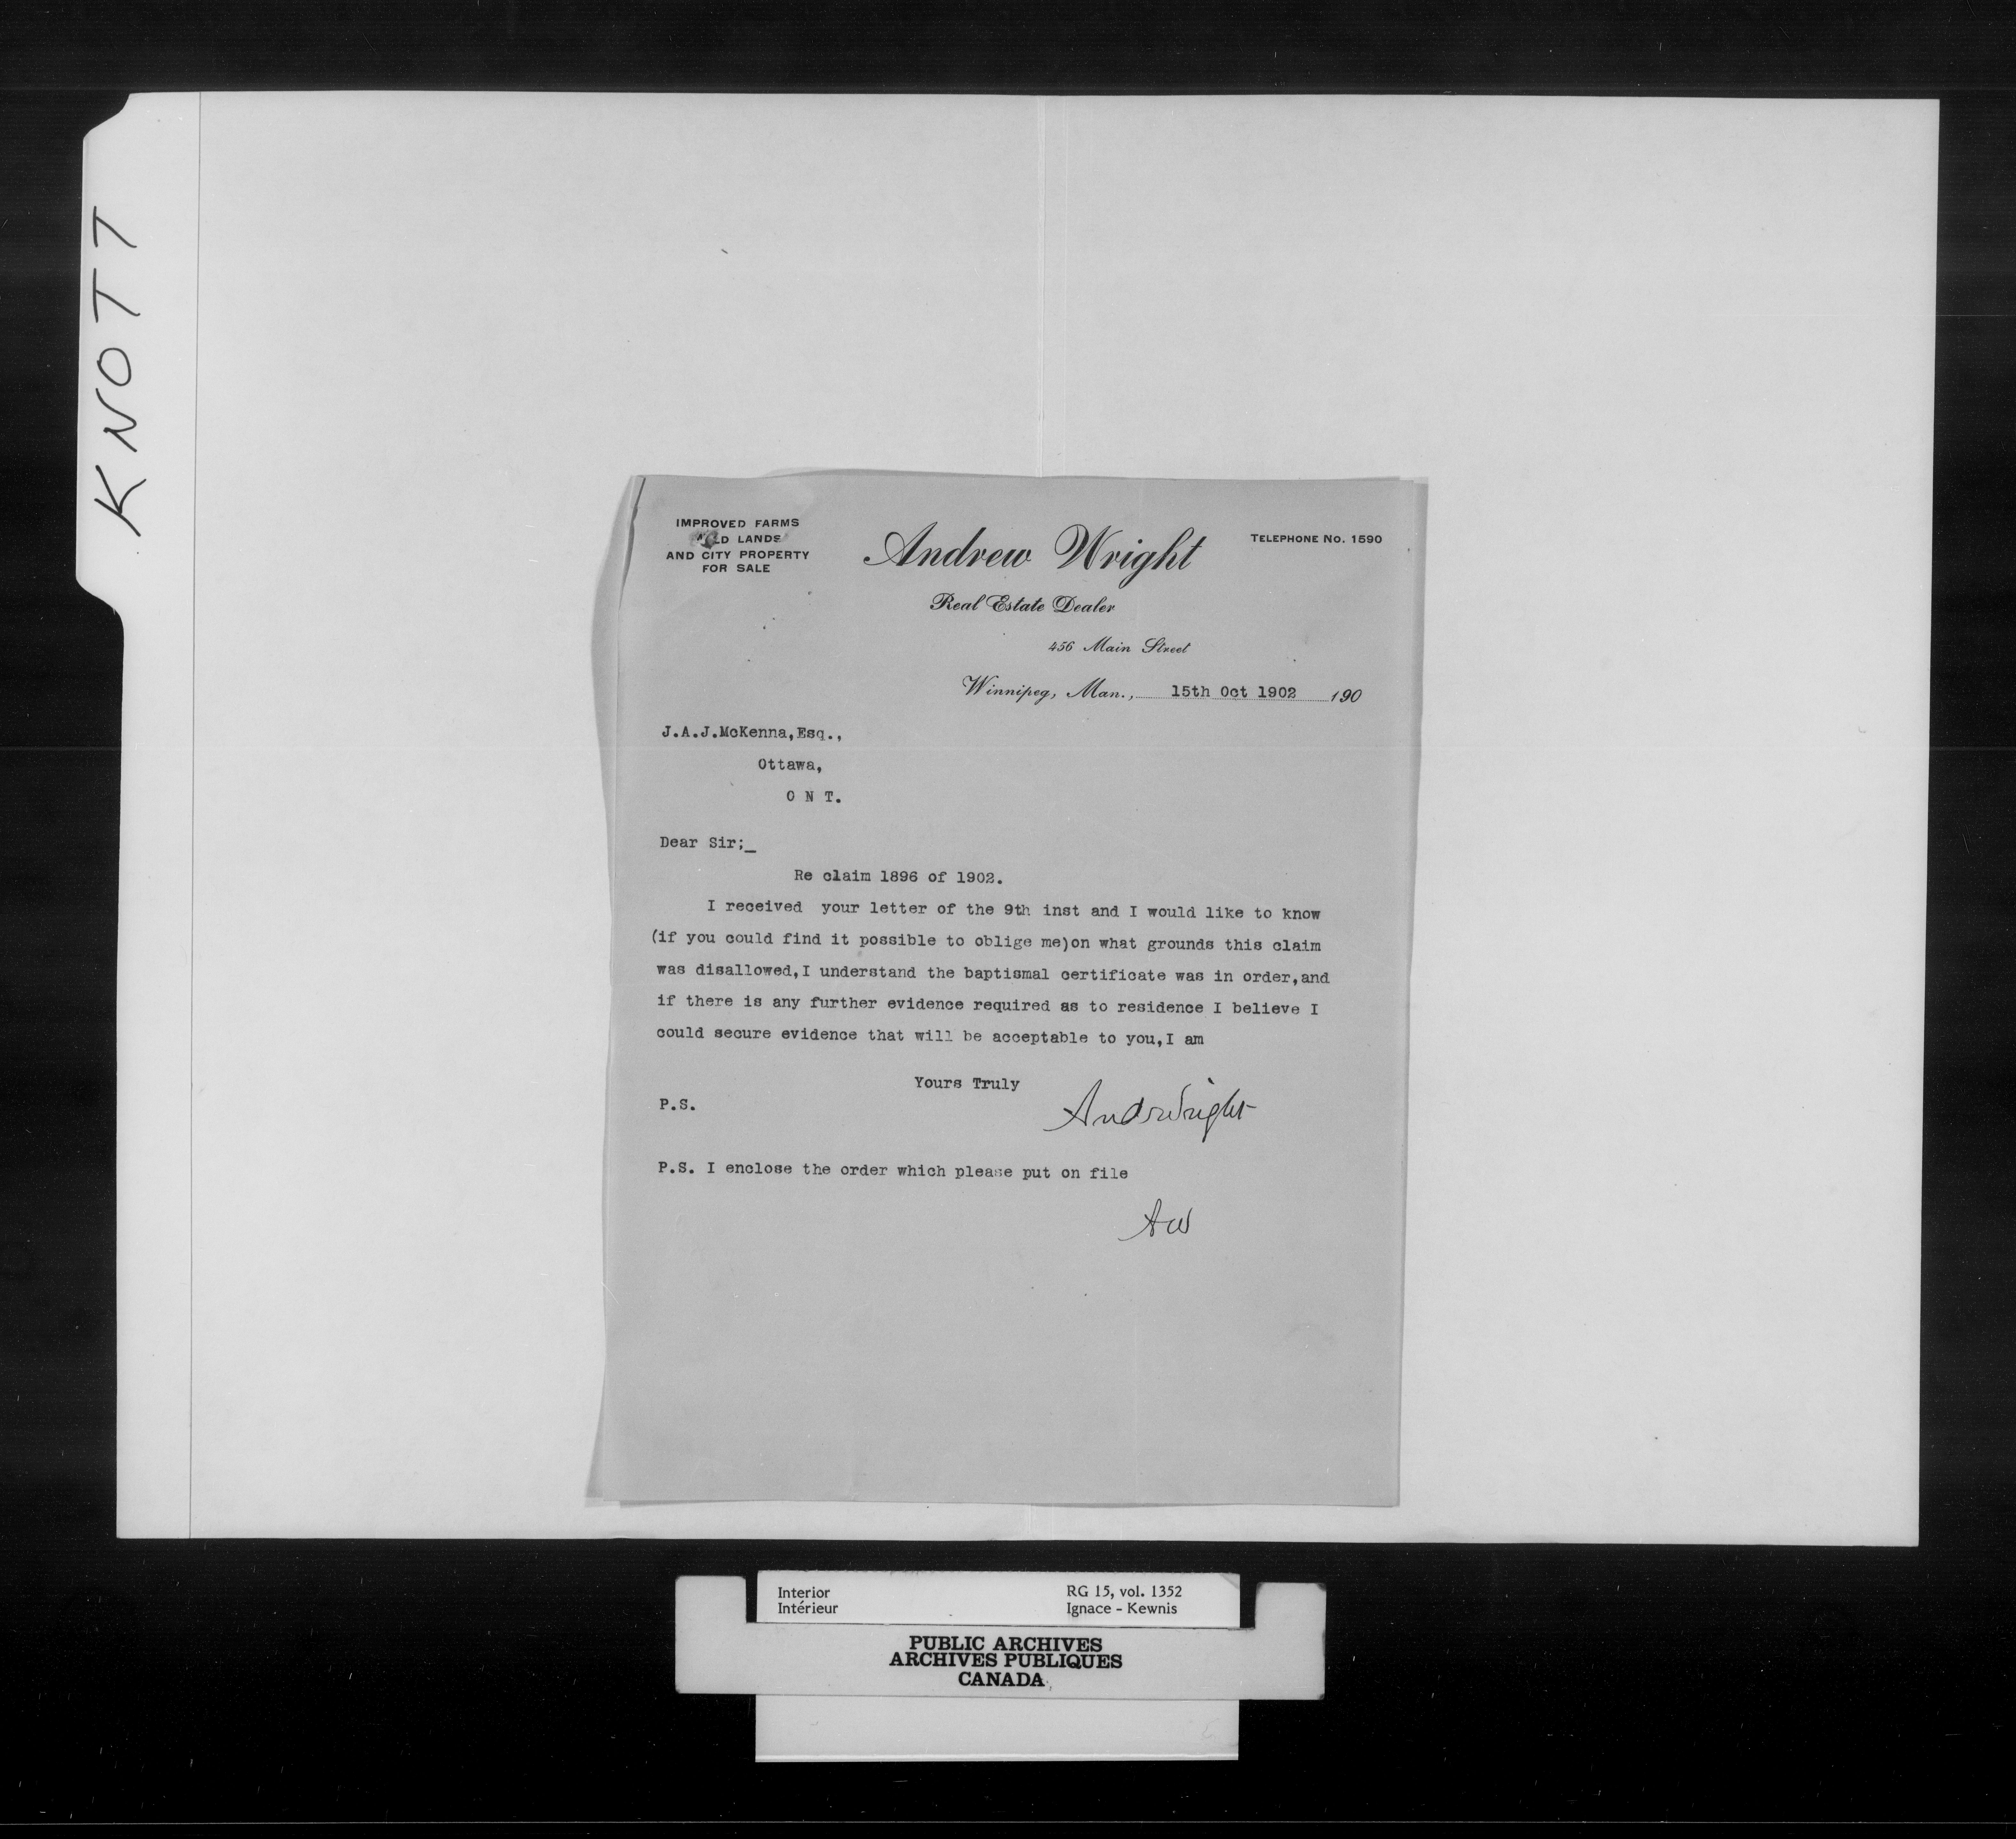 KNOTT
IMPROVED FARMS
LANDS
AND CITY PROPERTY
FOR SALE
Andrew Wright
TELEPHONE No. 1590
Real Estate Dealer
456 Main Street
Winnipeg, Man., 15th Oct 1902 190
J.A.J.McKenna,Esq.,
Ottawa,
O N T.
Dear Sir;_
Re claim 1896 of 1902.
I received your letter of the 9th inst and I would like to know
(if you could find it possible to oblige me)on what grounds this claim
was disallowed,I understand the baptismal certificate was in order,and
if there is any further evidence required as to residence I believe I
could secure evidence that will be acceptable to you,I am
Yours Truly
P.S.
AndWright
P.S. I enclose the order which please put on file
AW
Interior
Intérieur
RG 15, vol. 1352
Ignace - Kewnis
PUBLIC ARCHIVES
ARCHIVES PUBLIQUES
CANADA